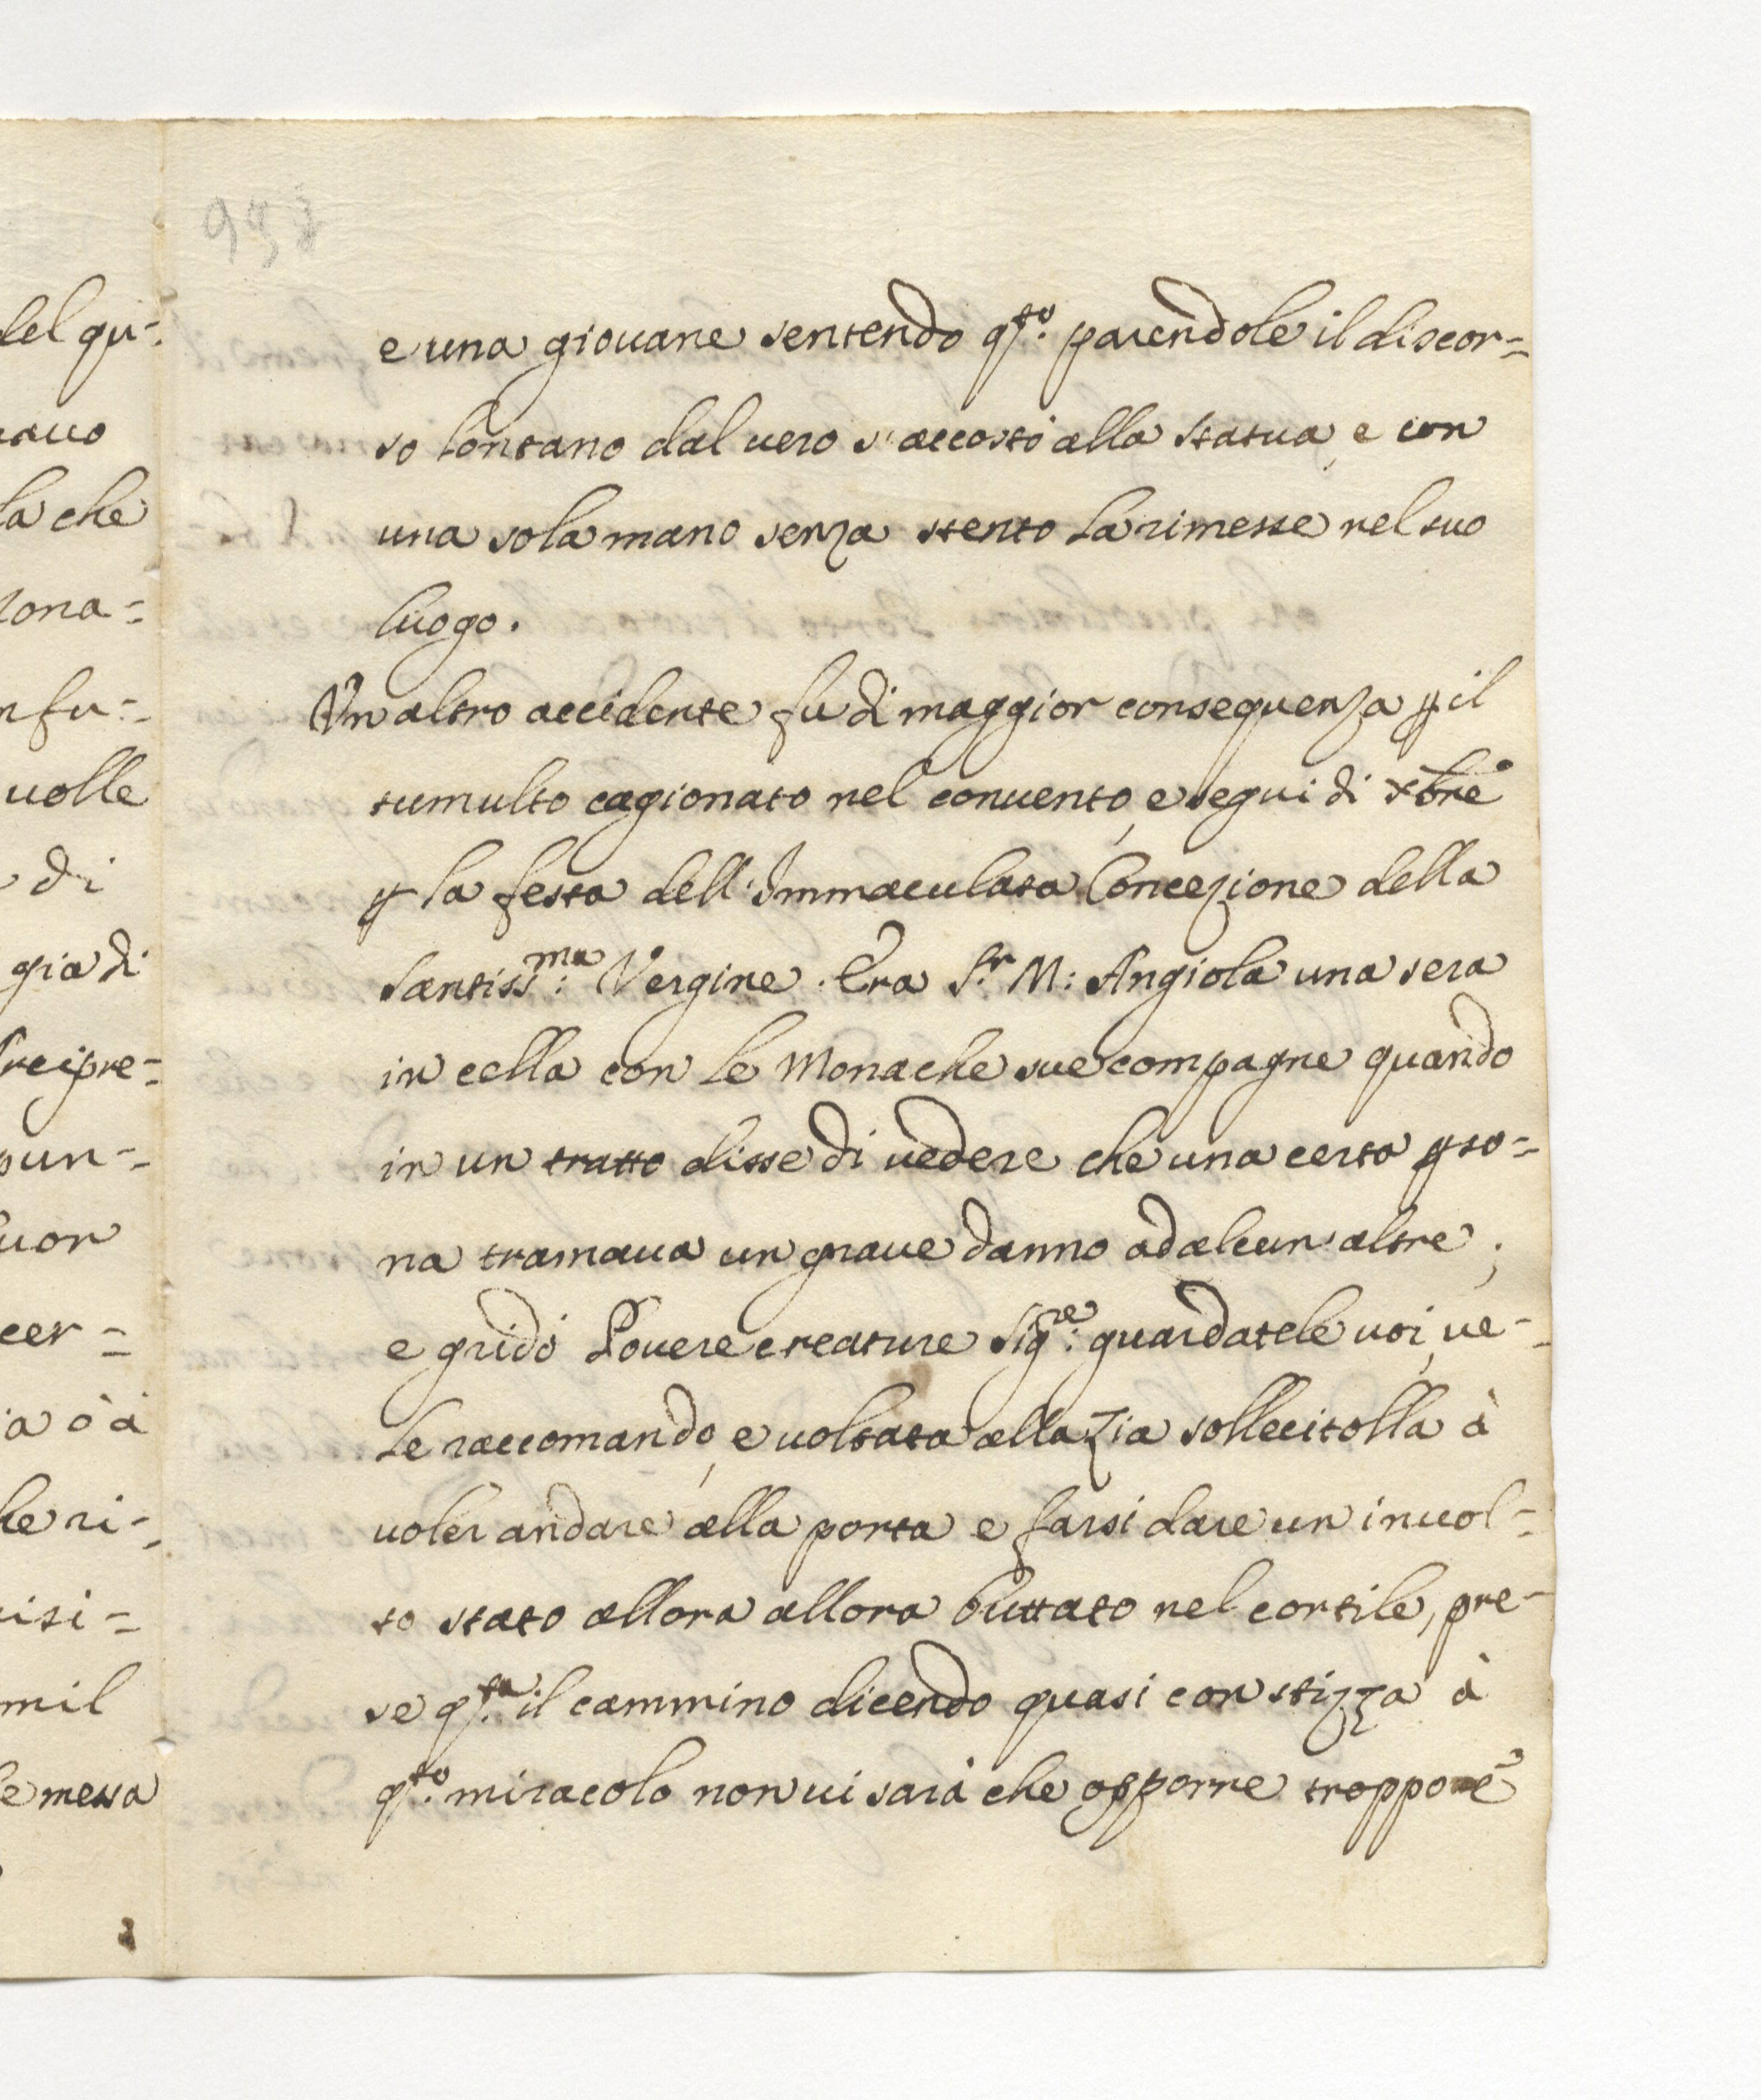 del qu-
la che
zona=
nfu=
uolle
di
gia di
pun-
cer=
ia ò à
he ri-
uisi=
mil
le messa
e una giouane sentendo q.sto parendole il discor=
so lontano dal uero s'accostò alla statua, e con
una sola mano senza stento la rimesse nel suo
luogo.
Un altro accidente fu di maggior conseguenza ꝑ il
tumulto cagionato nel conuento, e seguì di Xbre
ꝑ la festa dell'Immaculata Concezione della
Santiss:ma Vergine. Era S.r M: Angiola una sera
in cella con le Monache sue compagne quando
in un tratto disse di uedere che una certa ꝑso=
na tramaua un graue danno ad alcun'altre;
e gridò Pouere creature Sig:re guardatele uoi, ue-
le raccomando, e uoltata alla Zia sollecitolla à
uoler andare alla porta e farsi dare un inuol=
to stato allora allora buttato nel cortile, pre-
se q.sta il cammino dicendo quasi con stizza à
q.sto miracolo non ui sarà che opporre troppo è